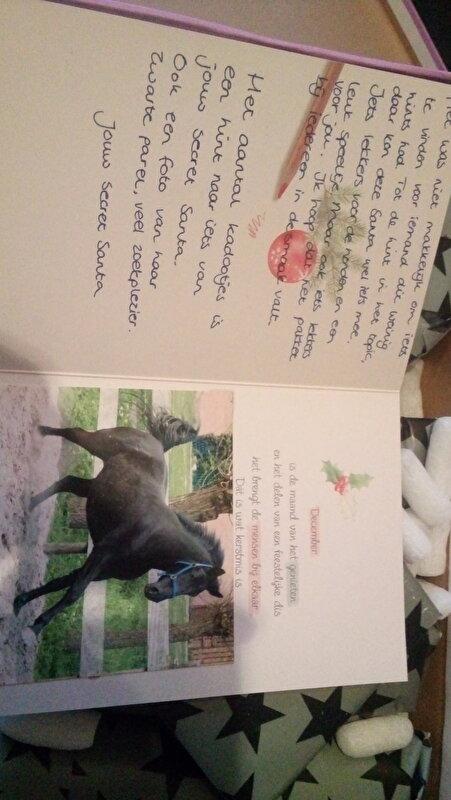 Het was niet makkelijk om iets
te vinden voor iemand die weinig
hints had. Tot de hint in het topic,
daar kon deze Santa wel iets mee.
Iets lekkers voor de honden en een
leuk speeltje, maar ook iets lekkers
voor jou. Ik hoop dat het pakket
bij iedereen in de smaak valt.
Het aantal kadootjes is
een hint naar iets van
jouw Secret Santa.
Ook een foto van haar
zwarte parel, veel zoekplezier.
Jouw Secret Santa
December
is de maand van het genieten
en het delen van een feestelijke dis
het brengt de mensen bij elkaar
Dat is wat kerstmis is